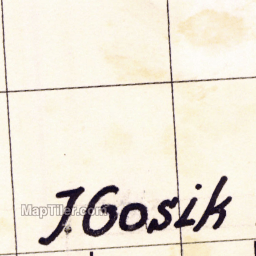 J. Gosik
MapTiler.com